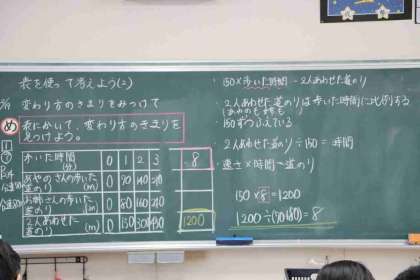 表を使って考えよう(2)
変わり方のきまりをみつけて
め 表にかいて、変わり方のきまりを
見つけよう。
歩いた時間 (分) 0 1 2 3 8
あやのさんの歩いた道のり (m) 0 70 140 210
お姉さんの歩いた道のり (m) 0 80 160 240
2人あわせた道のり (m) 0 150 300 450 1200
・150×歩いた時間=2人あわせた道のり
・2人あわせた道のりは歩いた時間に比例する
・150ずつふえている
・2人あわせた道のり÷150=時間
・速さ×時間=道のり
150×8=1200
1200÷(70+80)=8